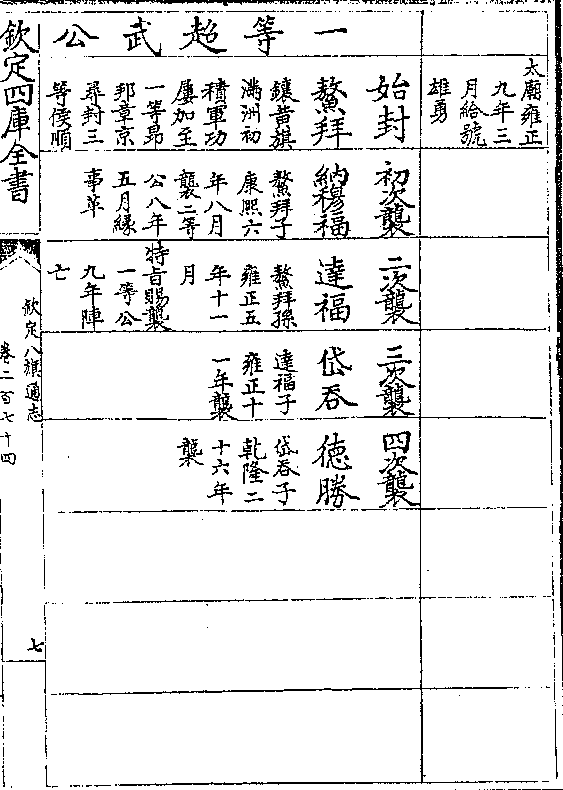 太廟雍正
九年三
月給號
雄勇
一等超武公
始封
鰲拜
鑲黃旗
滿洲初
積軍功
屢加至
一等昂
邦章京
尋封三
等侯順
初次襲
納穆福
鰲拜子
康熙六
年八月
襲二等
公八年
五月緣
事革
二次襲
達福
鰲拜孫
雍正五
年十一
月
特旨賜襲
一等公
九年陣
亡
三次襲
岱吞
達福子
雍正十
一年襲
四次襲
德勝
岱吞子
乾隆二
十六年
襲
欽定四庫全書
欽定八旗通志
卷二百七十四
七